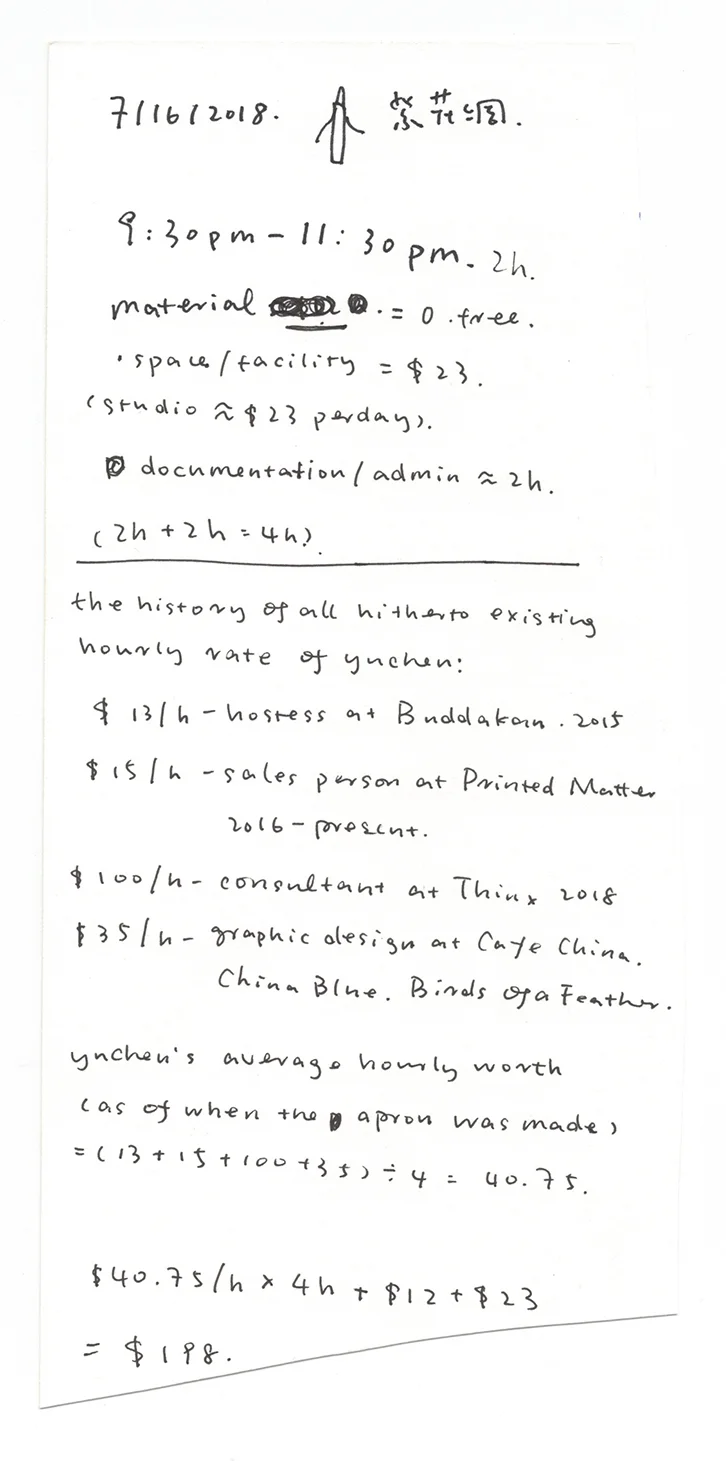 7/16/2018. 紫花细.
9:30pm - 11:30pm. 2h.
material . = 0 . free.
· space/facility = $23.
(studio ≈ $23 perday).
documentation/admin ≈ 2h.
(2h + 2h = 4h).
the history of all hitherto existing
hourly rate of ynchen:
$ 13/h - hostess at Buddakan . 2015
$15/h - sales person at Printed Matter
2016 - present.
$100/h - consultant at Thinx 2018
$35/h - graphic design at Cafe China.
China Blue. Birds of a Feather.
ynchen's average hourly worth
(as of when the apron was made)
= (13 + 15 + 100 + 35) ÷ 4 = 40.75.
$40.75/h × 4h + $12 + $23
= $198.